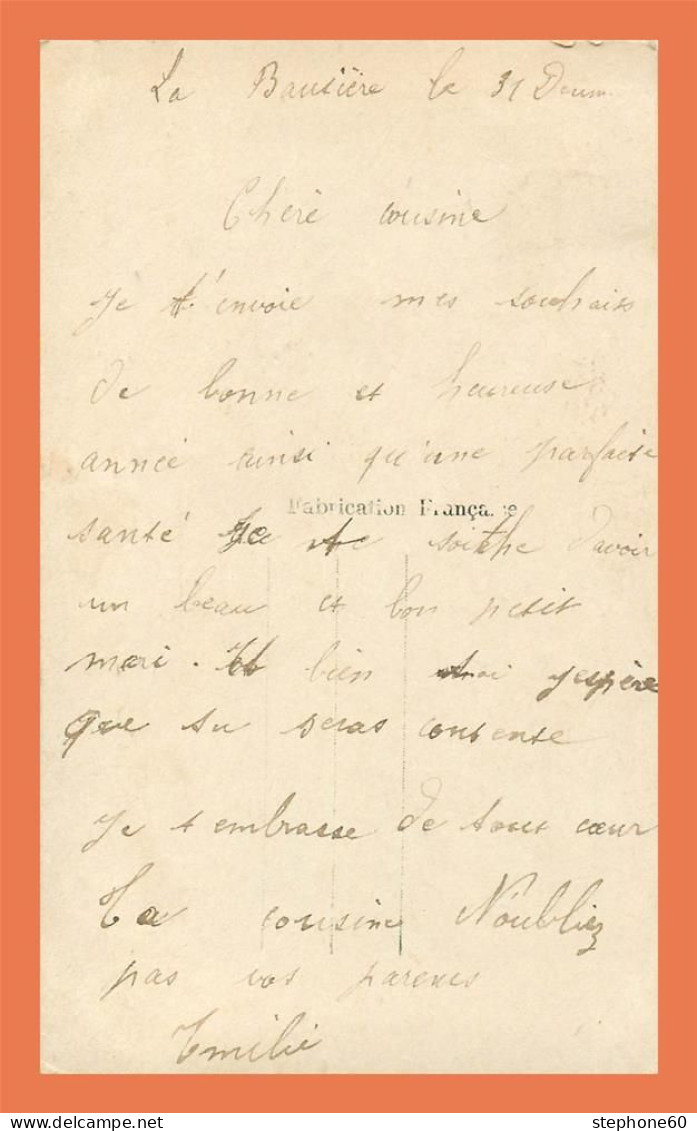 La Bausière le 31 Decem
Chère cousine
Je t'envoie mes souhais
de bonne et heureuse
année ainsi qu'une parfaite
Fabrication Française
santé Je te soithe d'avoir
un beau et bon petit
mari. bien moi j'espère
que tu seras contente
Je t embrasse de tout cœur
Ta cousine N'oubliez
pas vos parents
Emilie
stephone60